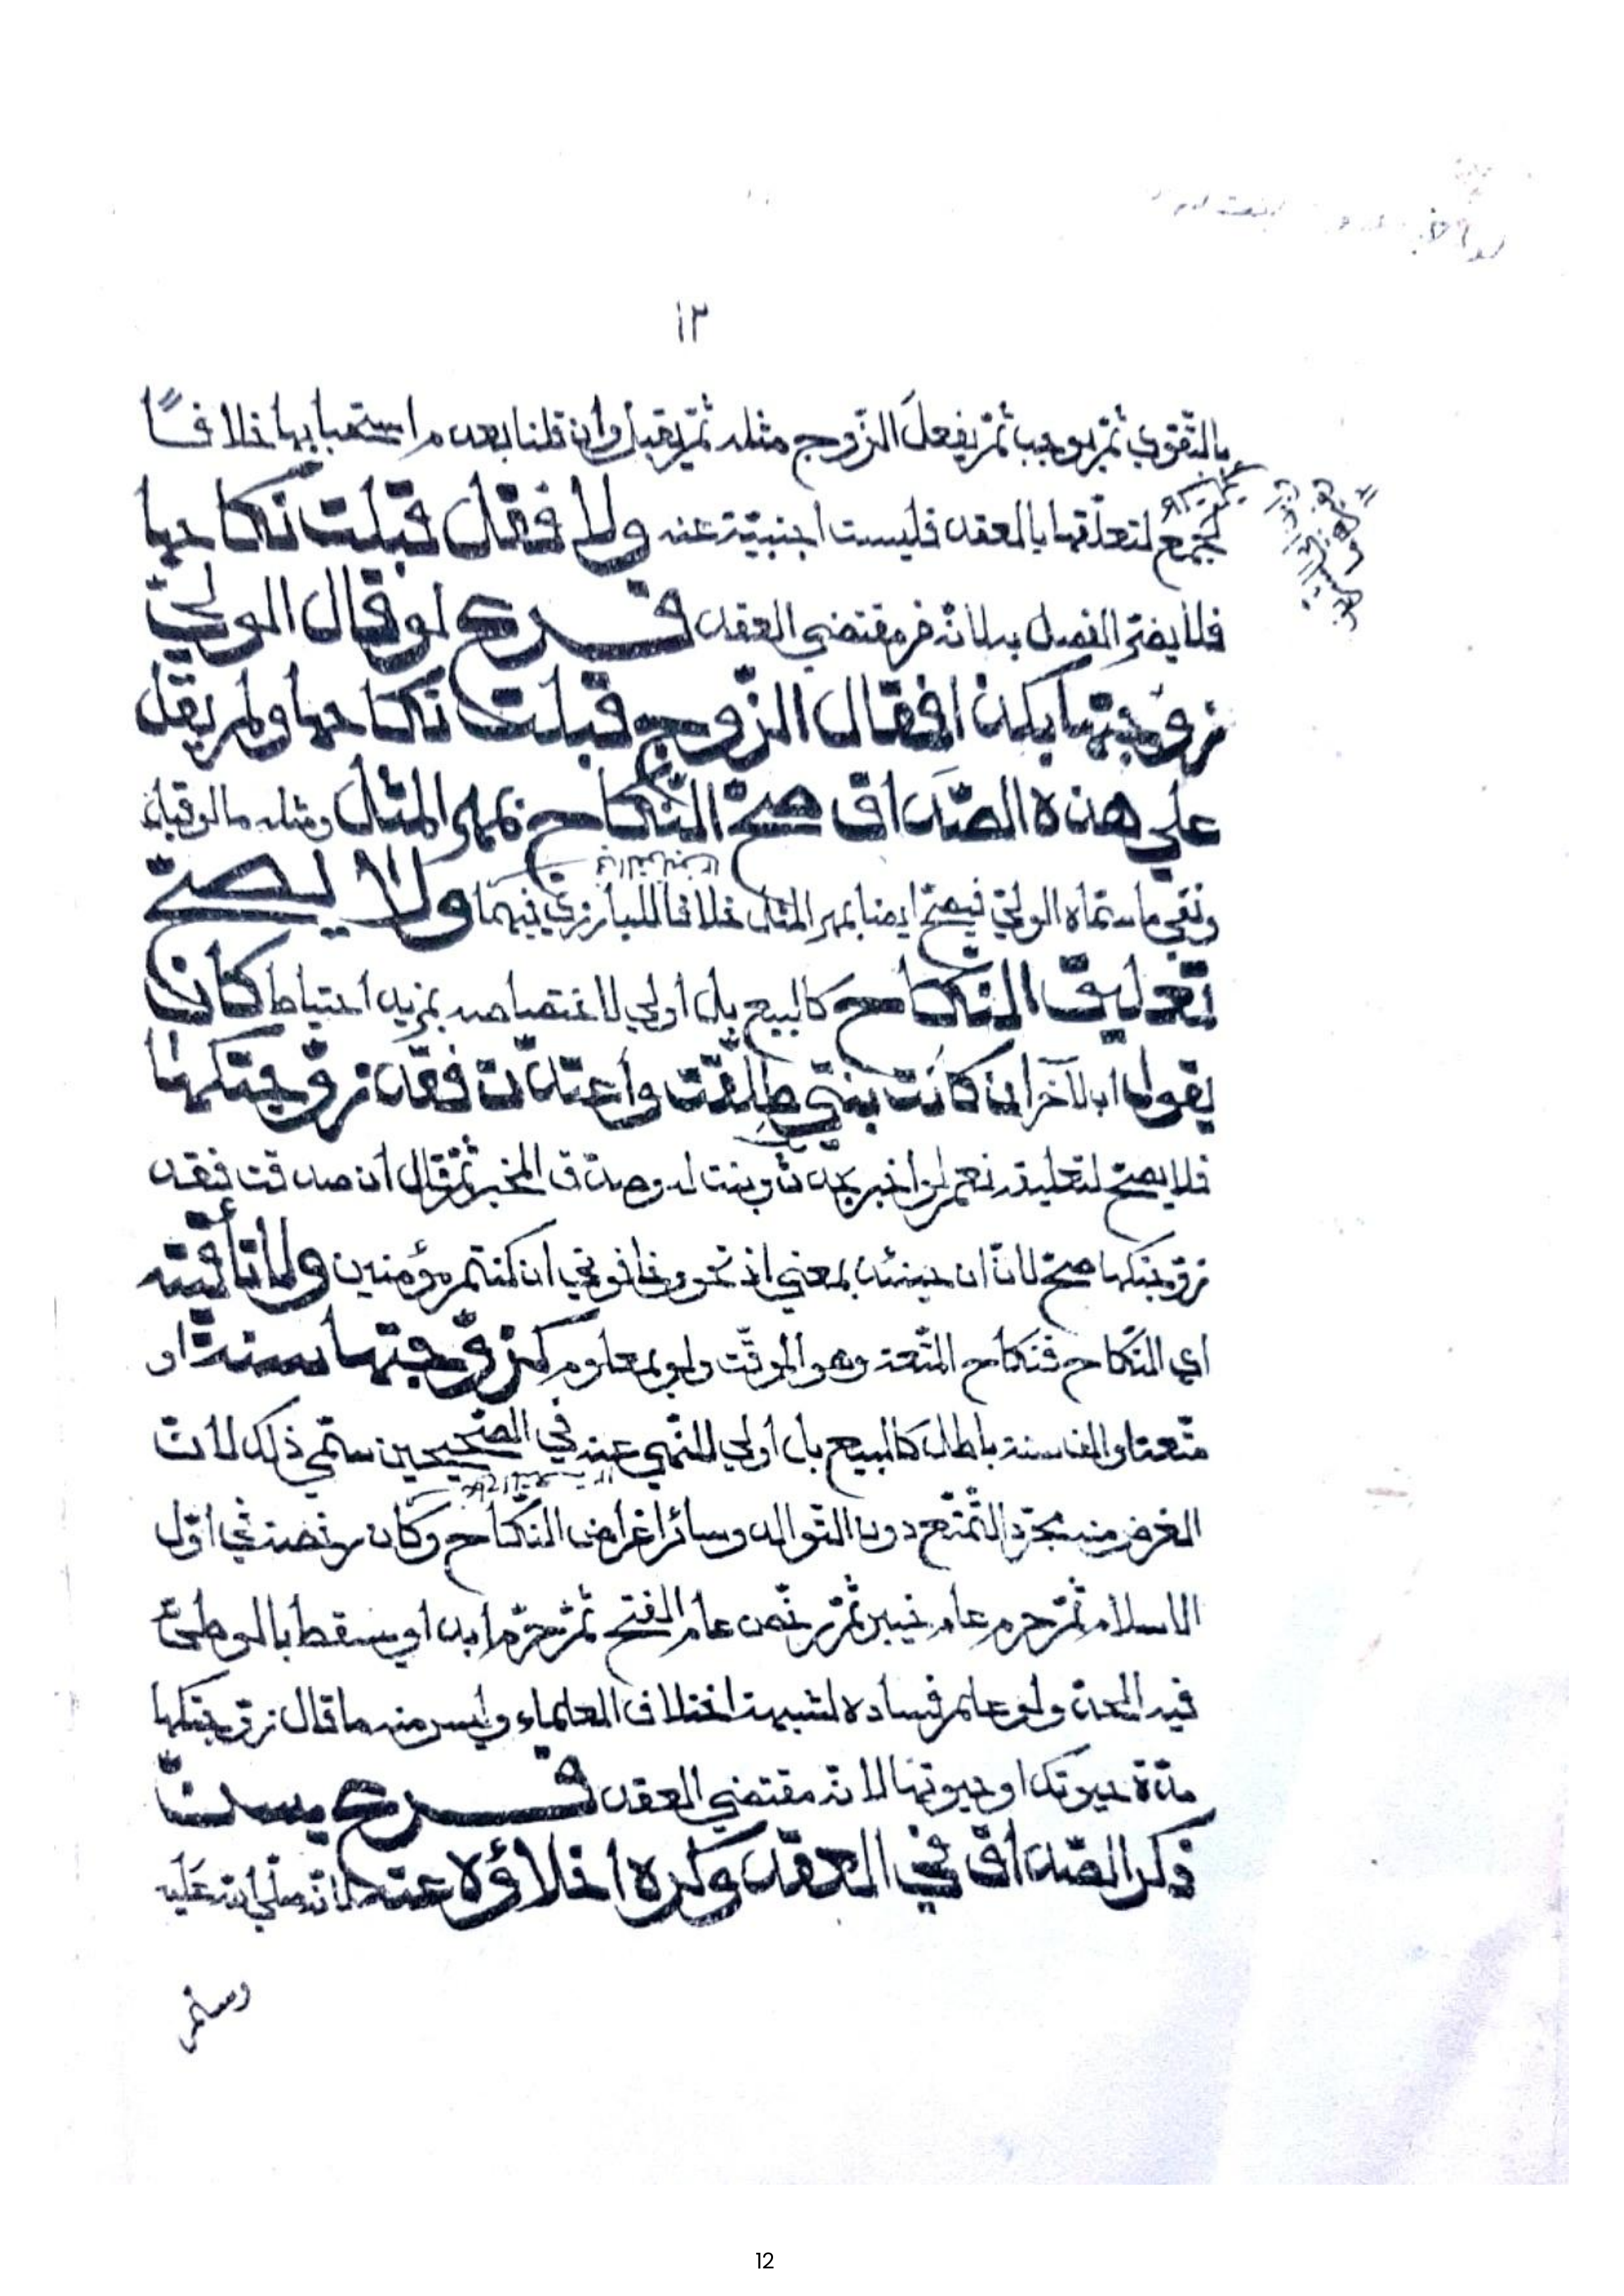 ١٢
بالتقوى ثمّ يوجب ثمّ يفعل الزّوج مثله ثمّ يقبل وان قلنا بعدم استحبابها خلافًا
لجمع لتعلّقها بالعقد فليست اجنبيّة عنه ولا فقل قبلت نكاحها
فلا يضرّ الفصل به لانّه من مقتضى العقد فرع لو قال الوليّ
زوّجتها بكذا فقال الزّوج قبلت نكاحها ولم يقل
على هذه الصّداق صحّ النّكاح بمهر المثل ومثله ما لو قبل
ونفى ما سمّاه الوليّ فيصحّ ايضا بمهر المثل خلافا للبارزي فيهما ولا يصحّ
تعليق النّكاح كالبيع بل أولى لاختصاصه بمزيد احتياط كان
يقول اب لآخر ان كانت بنتي طلّقت واعتدّت فقد زوّجتكها
فلا يصحّ لتعليقه نعم لو اخبر بحدوث بنت له وصدّق المخبر ثمّ قال ان صدقت فقد
زوّجتكها صحّ لانّ ان حينئذ بمعنى اذ نحو وخافوني ان كنتم مؤمنين ولا تأقيته
اي النّكاح فنكاح المتّعة وهو الموقّت ولو بمعلوم كزوّجتها سنة او
متّعتا والف سنة باطل كالبيع بل أولى للنّهي عنه في الصّحيحين سمّي ذلك لانّ
الغرض منه مجرّد التّمتّع دون التّوالد وسائر اغراض النّكاح وكان رخصة في اوّل
الاسلام ثمّ حرم عام خيبر ثمّ رخّص عام الفتح ثمّ حرّم ابدا ويسقط بالوطئ
فيه الحدّ ولو علم فساده لشبهة اختلاف العلماء وليس منه ما قال زوّجتكها
مدّة حيوتك او حيوتها لانّه مقتضى العقد فرع يسنّ
ذكر الصّداق في العقد وكره اخلاؤه عنه لانّه صلى الله عليه
وسلم
12